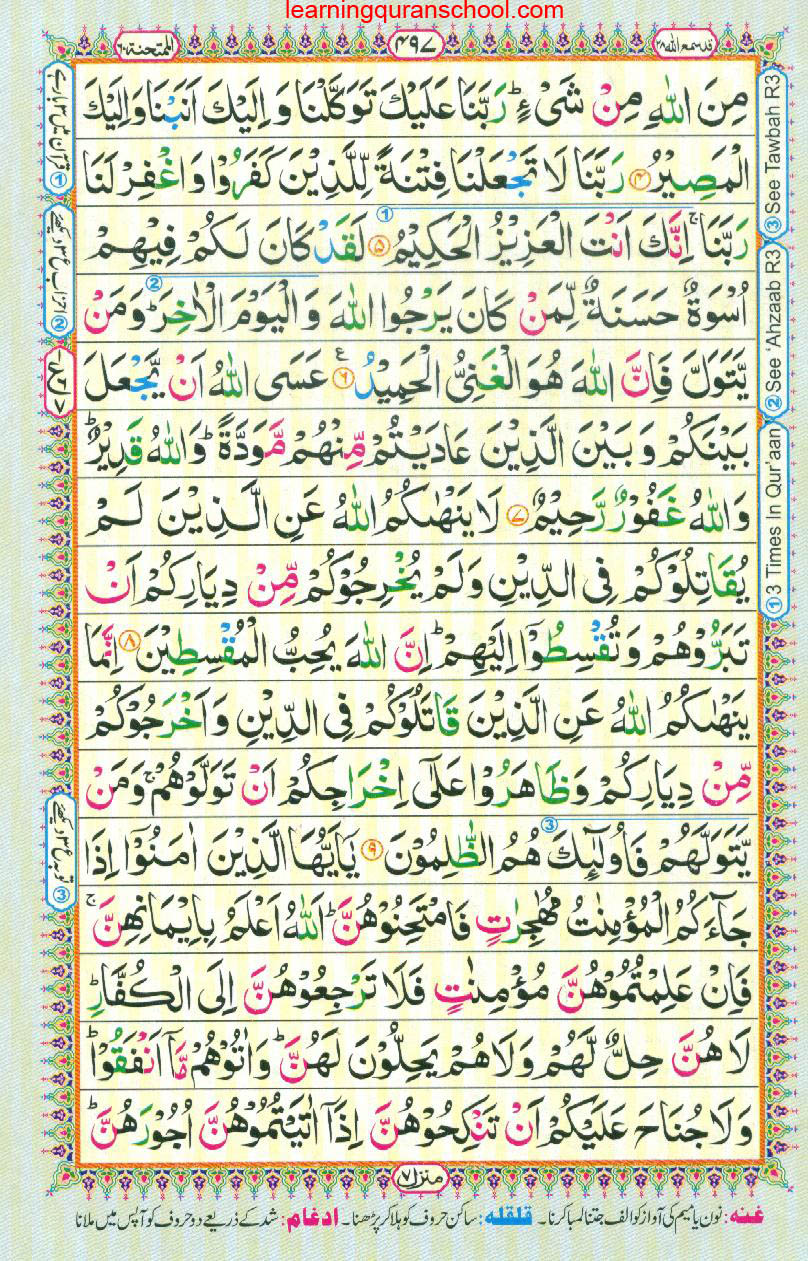 learningquranschool.com
قد سمع الله ٢٨
٤٩٧
الممتحنة ٦٠
مِنَ اللّٰهِ مِنْ شَیْءٍ ؕ رَبَّنَا عَلَیْكَ تَوَكَّلْنَا وَ اِلَیْكَ اَنَبْنَا وَاِلَیْكَ
الْمَصِیْرُ ﴿۴﴾ رَبَّنَا لَا تَجْعَلْنَا فِتْنَةً لِّلَّذِیْنَ كَفَرُوْا وَ اغْفِرْ لَنَا
رَبَّنَا ۚ اِنَّكَ اَنْتَ الْعَزِیْزُ الْحَكِیْمُ ﴿۵﴾ لَقَدْ كَانَ لَكُمْ فِیْهِمْ
اُسْوَةٌ حَسَنَةٌ لِّمَنْ كَانَ یَرْجُوا اللّٰهَ وَ الْیَوْمَ الْاٰخِرَ ؕ وَمَنْ
یَّتَوَلَّ فَاِنَّ اللّٰهَ هُوَ الْغَنِیُّ الْحَمِیْدُ ﴿۶﴾ ع عَسَی اللّٰهُ اَنْ یَّجْعَلَ
بَیْنَكُمْ وَ بَیْنَ الَّذِیْنَ عَادَیْتُمْ مِّنْهُمْ مَّوَدَّةً ؕ وَاللّٰهُ قَدِیْرٌ ؕ
وَاللّٰهُ غَفُوْرٌ رَّحِیْمٌ ﴿۷﴾ لَا یَنْهٰىكُمُ اللّٰهُ عَنِ الَّذِیْنَ لَمْ
یُقَاتِلُوْكُمْ فِی الدِّیْنِ وَلَمْ یُخْرِجُوْكُمْ مِّنْ دِیَارِكُمْ اَنْ
تَبَرُّوْهُمْ وَ تُقْسِطُوْۤا اِلَیْهِمْ ؕ اِنَّ اللّٰهَ یُحِبُّ الْمُقْسِطِیْنَ ﴿۸﴾ اِنَّمَا
یَنْهٰىكُمُ اللّٰهُ عَنِ الَّذِیْنَ قَاتَلُوْكُمْ فِی الدِّیْنِ وَ اَخْرَجُوْكُمْ
مِّنْ دِیَارِكُمْ وَ ظَاهَرُوْا عَلٰۤی اِخْرَاجِكُمْ اَنْ تَوَلَّوْهُمْ ۚ وَمَنْ
یَّتَوَلَّهُمْ فَاُولٰٓىِٕكَ هُمُ الظّٰلِمُوْنَ ﴿۹﴾ یٰۤاَیُّهَا الَّذِیْنَ اٰمَنُوْۤا اِذَا
جَآءَكُمُ الْمُؤْمِنٰتُ مُهٰجِرٰتٍ فَامْتَحِنُوْهُنَّ ؕ اَللّٰهُ اَعْلَمُ بِاِیْمَانِهِنَّ ۚ
فَاِنْ عَلِمْتُمُوْهُنَّ مُؤْمِنٰتٍ فَلَا تَرْجِعُوْهُنَّ اِلَی الْكُفَّارِ ؕ
لَا هُنَّ حِلٌّ لَّهُمْ وَلَا هُمْ یَحِلُّوْنَ لَهُنَّ ؕ وَاٰتُوْهُمْ مَّاۤ اَنْفَقُوْا ؕ
وَلَا جُنَاحَ عَلَیْكُمْ اَنْ تَنْكِحُوْهُنَّ اِذَاۤ اٰتَیْتُمُوْهُنَّ اُجُوْرَهُنَّ ؕ
③ See Tawbah R3
② See 'Ahzaab R3
① 3 Times In Qur'aan
① قرآن میں ۳ بار ہے
② احزاب ع ۳ دیکھئے
③ توبہ ع ۳ دیکھئے
منزل ٧
غنہ: نون یا میم کی آواز کو الف جتنا لمبا کرنا۔ قلقلہ: ساکن حروف کو ہلا کر پڑھنا۔ ادغام: شد کے ذریعے دو حروف کو آپس میں ملانا